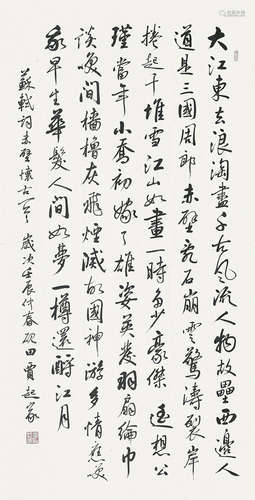 大江東去浪淘盡千古風流人物故壘西邊人
道是三國周郎赤壁亂石崩雲驚濤裂岸
捲起千堆雪江山如畫一時多少豪傑遙想公
瑾當年小喬初嫁了雄姿英發羽扇綸巾
談笑間檣櫓灰飛煙滅故國神游多情應笑
我早生華髮人間如夢一樽還酹江月
蘇軾詞赤壁懷古一首歲次壬辰仲春硯田賈起家